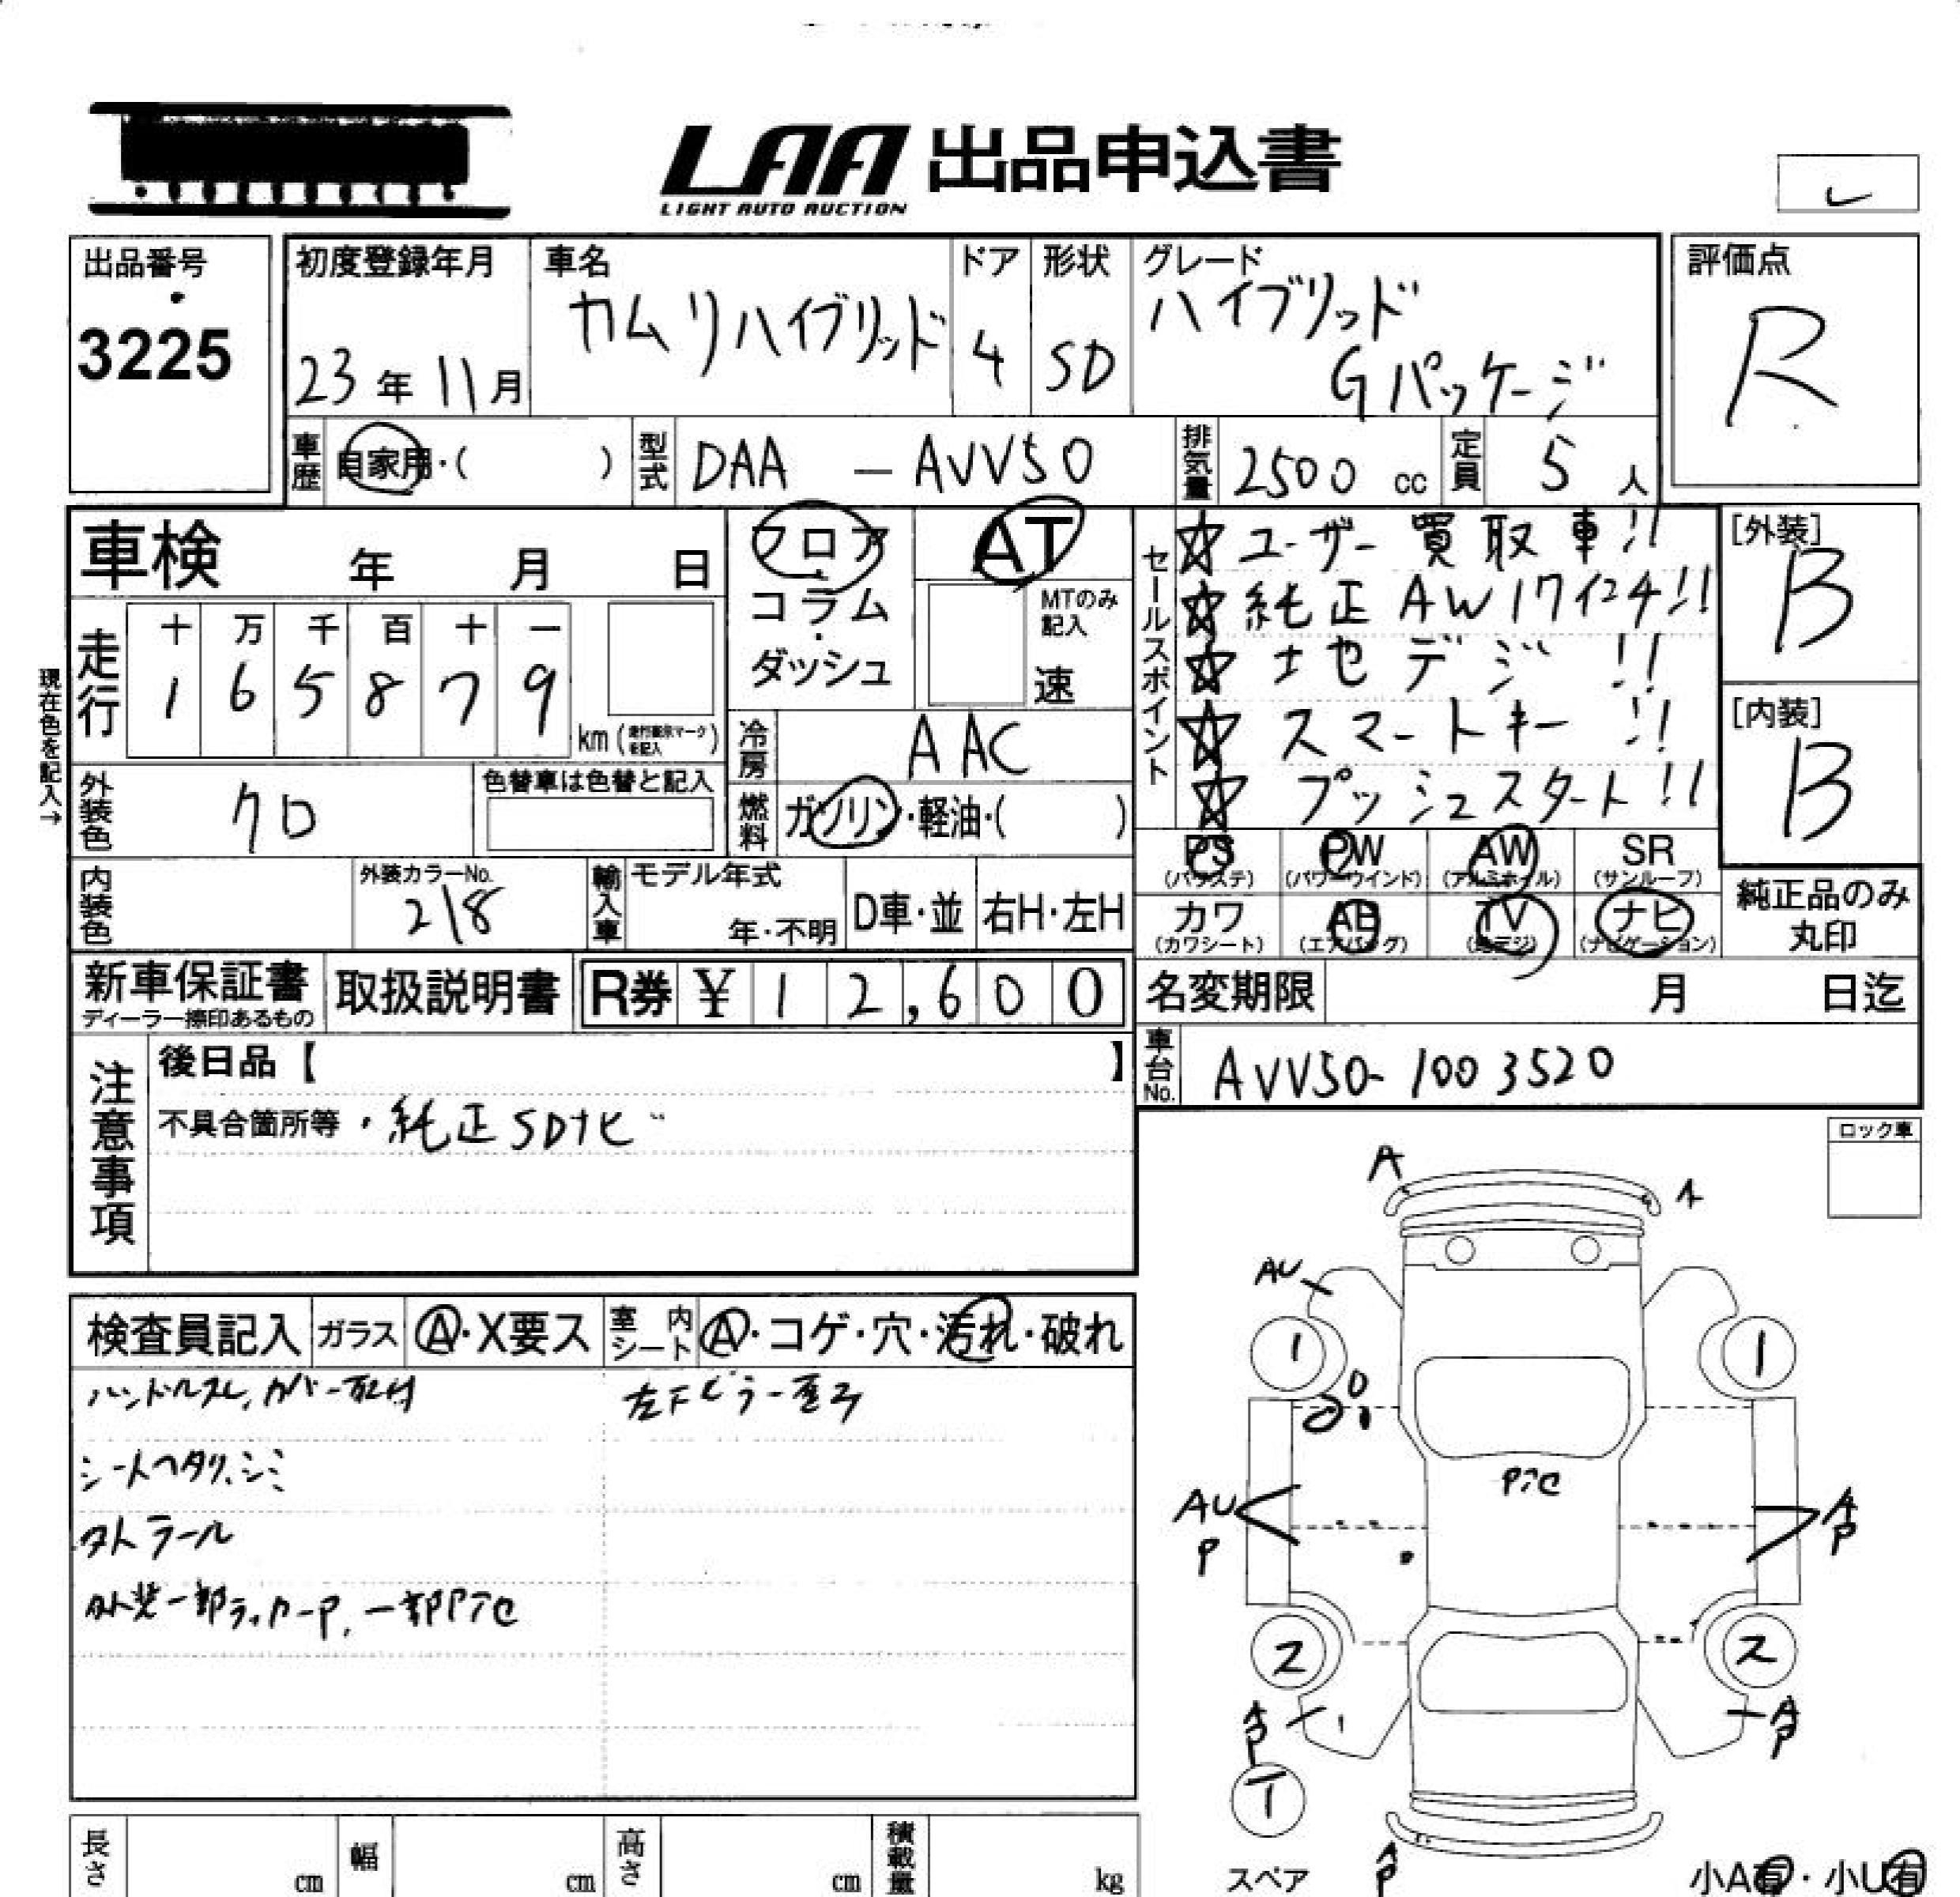 LAA 出品申込書
LIGHT AUTO AUCTION
出品番号
3225
初度登録年月
23年11月
車名
カムリハイブリッド
ドア
4
形状
SD
グレード
ハイブリッド
Gパッケージ
評価点
R
車歴 自家用・( )
型式 DAA - AVV50
排気量 2500 cc
定員 5人
車検 年 月 日
フロア
コラム
ダッシュ
AT
MTのみ
記入
速
セールスポイント
☆ユーザー買取車!!
☆純正AW17インチ!!
☆地デジ!!
☆スマートキー!!
☆プッシュスタート!!
[外装]
B
[内装]
B
現在色を記入→
走行
十 万 千 百 十 一
1 6 5 8 7 9
km
冷房 AAC
燃料 ガソリン・軽油・( )
外装色 クロ
色替車は色替と記入
内装色
外装カラーNo.
218
輸入車
モデル年式
年・不明
D車・並
右H・左H
PS
(パワステ)
PW
(パワーウインド)
AW
(アルミホイル)
SR
(サンルーフ)
カワ
(カワシート)
AB
(エアバッグ)
TV
(地デジ)
ナビ
(ナビゲーション)
純正品のみ
丸印
新車保証書
ディーラー捺印あるもの
取扱説明書
R券 ¥ 12,600
名変期限 月 日迄
車台No. AVV50-1003520
注意事項
後日品【 】
不具合箇所等 ・純正SDナビ
ロック車
検査員記入
ガラス Ⓐ・X要ス
室内シート Ⓐ・コゲ・穴・汚れ・破れ
ハンドルスレ、カバー取付
シートヘタリ、シミ
外装一部ラッカーP、一部Pアセ
A
A
AU
1
1
Pアセ
AU
P
A
P
2
2
A
P
A
P
T
スペア
A
P
小A有・小U有
長さ cm
幅 cm
高さ cm
積載量 kg